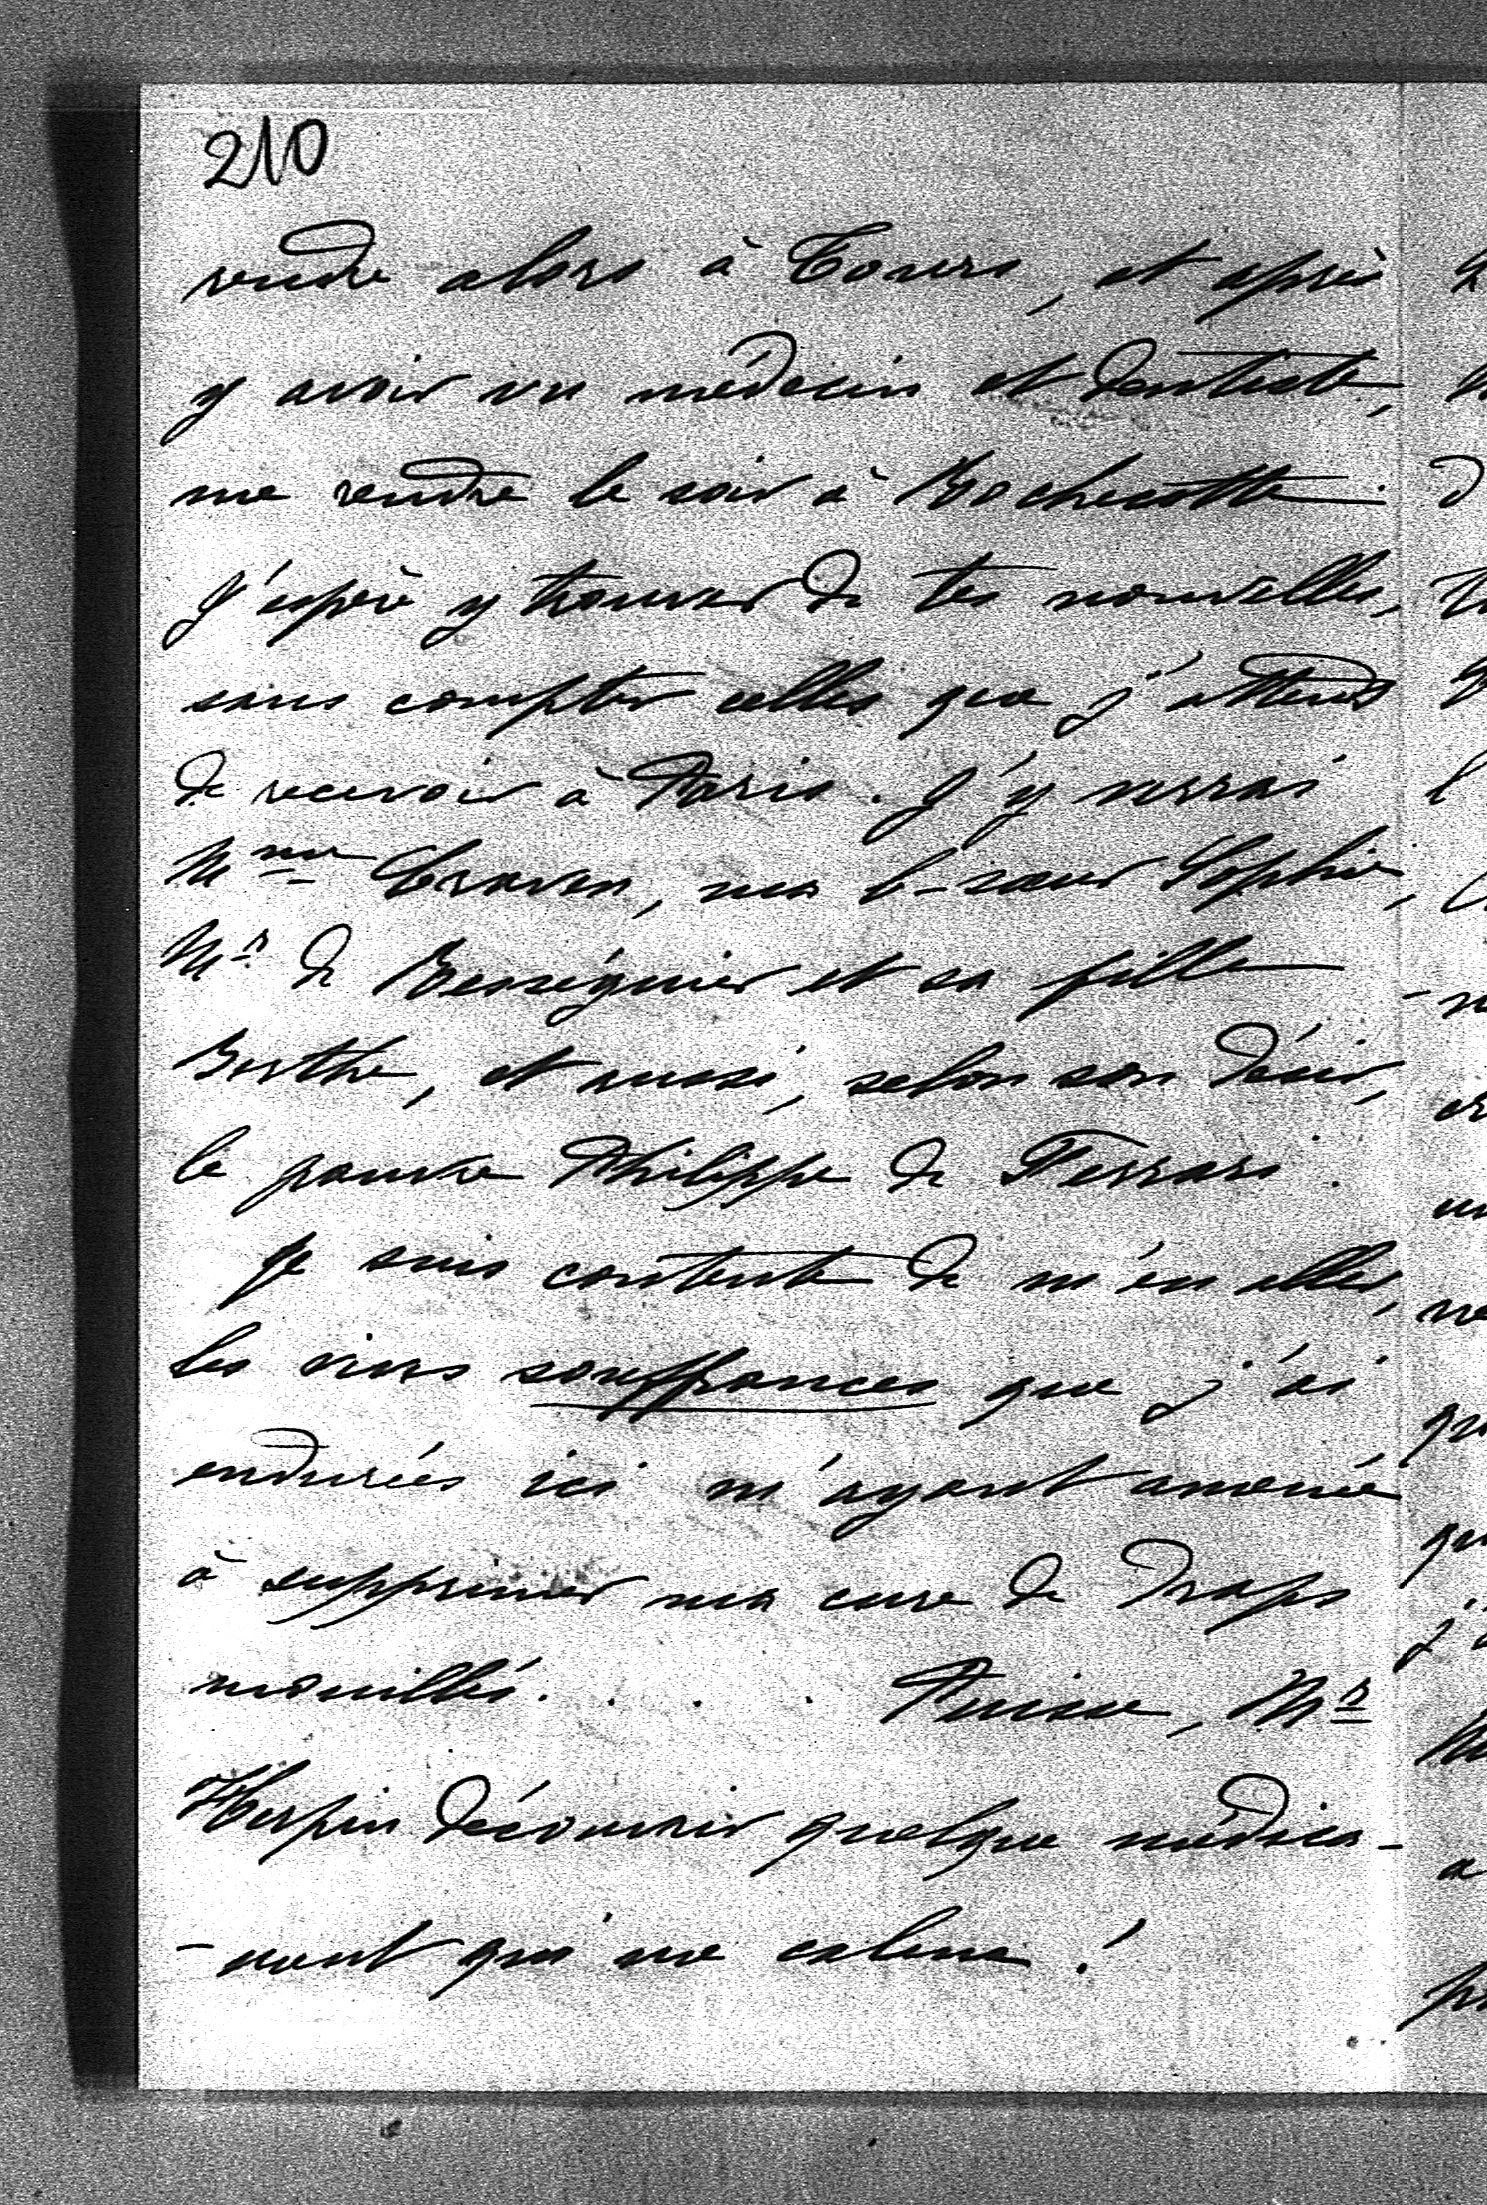 210
rendre alors à Tours, et après
y avoir vu médecin et dentiste,
me rendre le soir à Rochecotte.
J'espère y trouver de tes nouvelles,
sans compter celles que j'attends
de recevoir à Paris. J'y verrai
Mme Craven, ma b-soeur Sophie,
Mr de Rességuier et sa fille
Berthe, et aussi, selon son désir,
le pauvre Philippe de Ferrari.
Je suis contente de m'en aller,
les vives souffrances que j'ai
endurées ici m'ayant amenée
à supprimer ma cure de draps
mouillés. . . . Puisse, Mr
Herpin découvrir quelque médica-
-ment qui me calme !